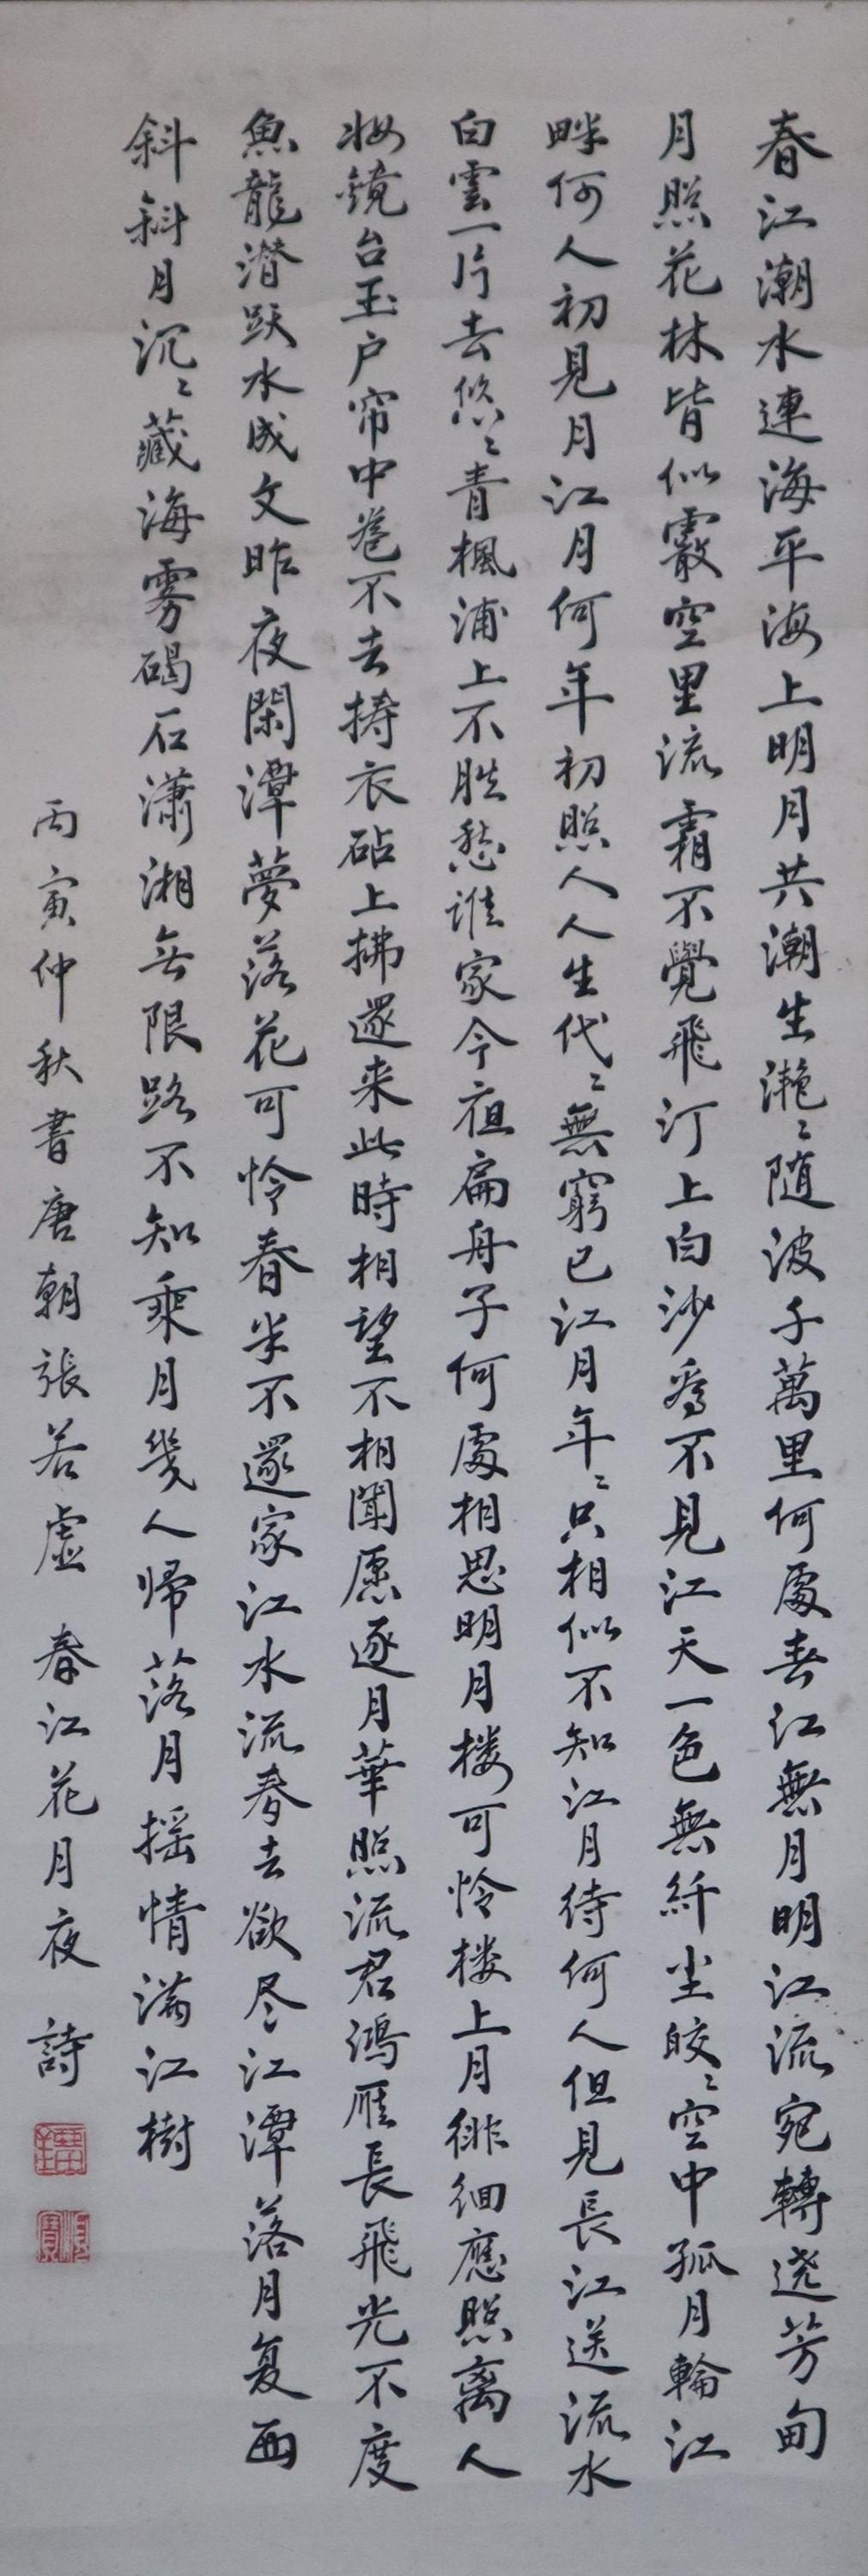 春江潮水連海平海上明月共潮生灔〻随波千萬里何處春江無月明江流宛轉遶芳甸
月照花林皆似霰空里流霜不覺飛汀上白沙看不見江天一色無纤尘皎〻空中孤月輪江
畔何人初見月江月何年初照人人生代〻無窮已江月年〻只相似不知江月待何人但見長江送流水
白雲一片去悠〻青楓浦上不胜愁谁家今夜扁舟子何處相思明月楼可怜楼上月徘徊應照离人
妆鏡台玉户帘中卷不去擣衣砧上拂還来此時相望不相聞愿逐月華照流君鴻雁長飛光不度
魚龍潜跃水成文昨夜閑潭夢落花可怜春半不還家江水流春去欲尽江潭落月复西
斜斜月沉〻藏海雾碣石潇湘无限路不知乘月幾人歸落月摇情满江樹
丙寅仲秋書唐朝張若虛 春江花月夜 詩